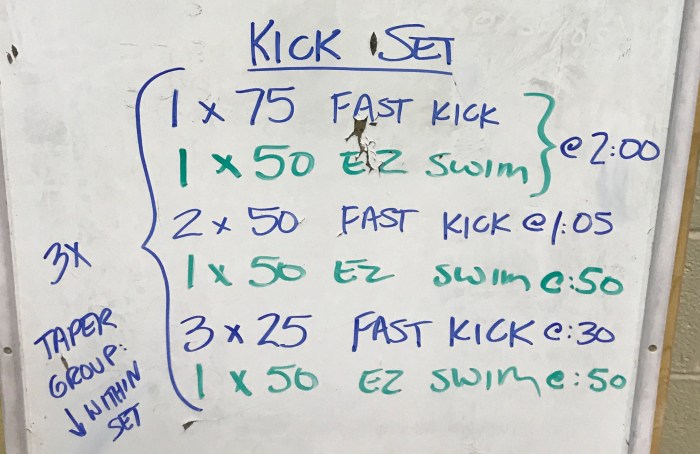 KICK SET
1 x 75 FAST KICK
1 x 50 EZ SWIM
@ 2:00
2 x 50 FAST KICK @ 1:05
1 x 50 EZ SWIM @ :50
3 x 25 FAST KICK @ :30
1 x 50 EZ SWIM @ :50
3x
TAPER
GROUP:
↓ WITHIN
SET